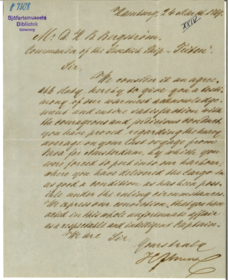 Sjöfartsmuseets
Bibliotek
Göteborg
Hamburg, 26 1869.
XXIV.
Mr. A. H. B. Bergström,
Commander of the Swedish Ship
Sir.
We consider it an agree-
able duty hereby to give you a testi-
mony of our warmest acknowledge-
ment and entire satisfaction with
the courageous and judicious conduct
you have proved regarding the heavy
average on your last voyage from
here for in which
you were forced to put into our harbour,
where you have delivered the cargo in
as good a condition as has been possi-
ble under the existing circumstances.
We express our conviction, that you have
acted in this whole unfortunate affair
as a respectable and intelligent Captain.
We are Sir
Yours truly